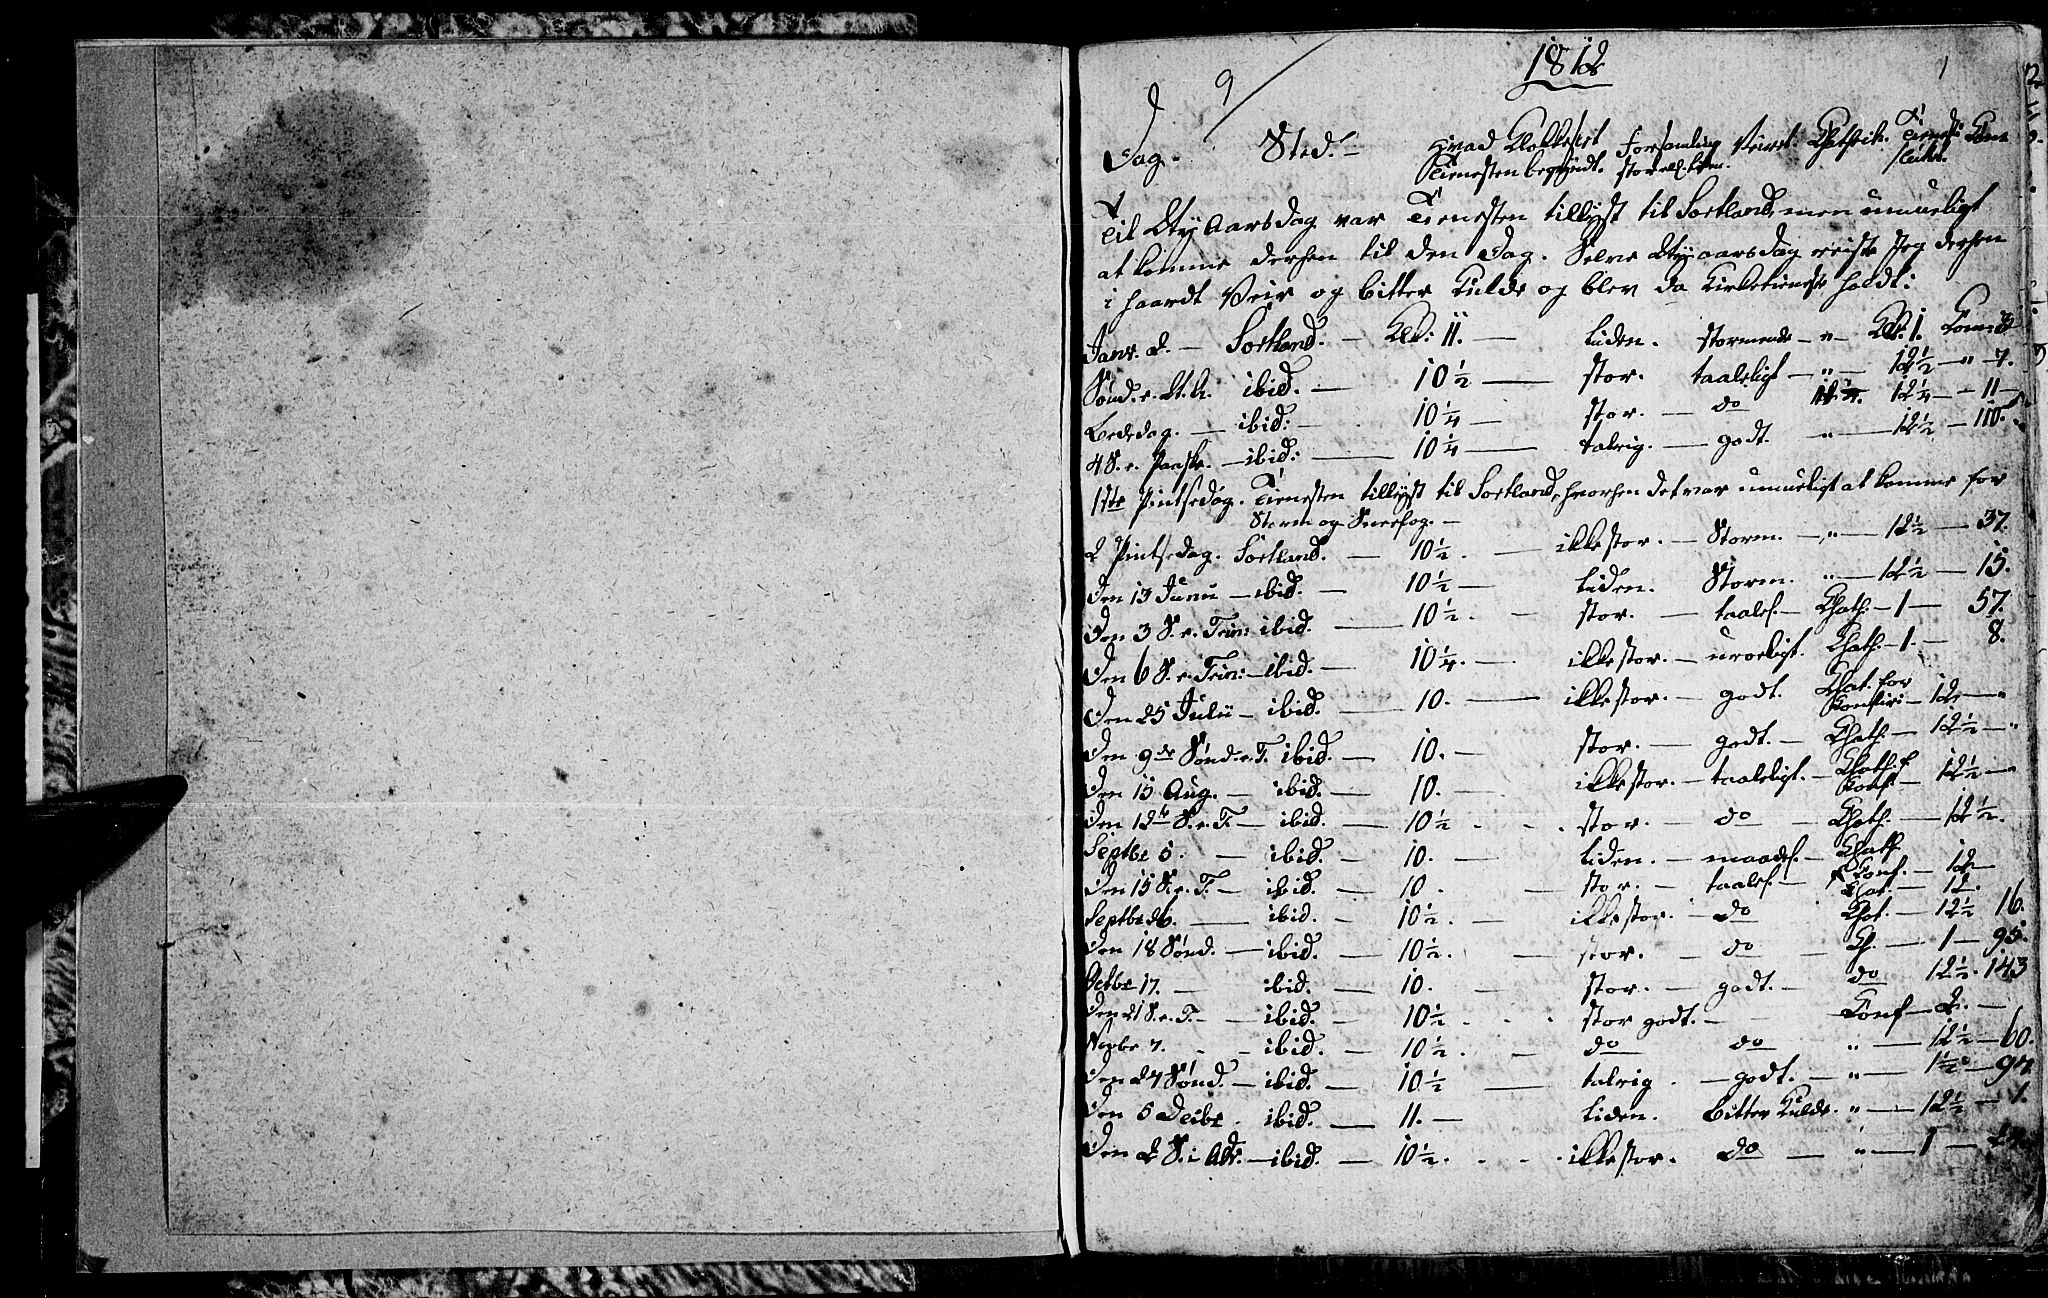 1812
9
1
Dag. Sted. Hvad Klokkeslet Forsamling Veiret. Chatech. Tienesten Com
Tienesten begyndt. stor ell. liden. sluttet.
Til Nytaarsdag var Tienesten tillyst til Sortland, men umueligt
at komme derhen til den Dag. Selve Nytaarsdag reiste jeg derhen
i haardt Veir og bitter Kulde og blev da Kirketieneste holdt:
Janr. 2. — Sortland. — Kl. 11. — liden. stormende — " — Kl. 1. Com: 3
Sønd. e. N.A. ibid. — 10 1/2 — stor. taaleligt — " — 12 1/2 " 7.
Bededag. — ibid: — 10 1/4 — stor. — do 12 1/4 — 11 —
4 S. e. Paaske. — ibid: — 10 1/4 — talrig. — godt. " — 12 1/2 — 110.
1ste Pintsedag. Tienesten tillyst til Sortland, hvorhen det var umueligt at komme for
Storm og Sneefog. —
2 Pintsedag. Sortland. — 10 1/2. — ikke stor. — Storm. — " — 12 1/2 — 37.
Den 13 Junii — ibid. — 10 1/2 — liden. Storm. " — 12 1/2 — 15.
Den 3 S. e. Trin: ibid. — 10 1/2. — stor. — taalel. — Chath. — 1 — 57.
Den 6 S. e. Trin: — ibid. — 10 1/4. — ikke stor. — uroeligt. Chath. — 1. — 8.
Den 25 Julii — ibid. — 10. — ikke stor. — godt. Chat. for
Konfiri — 12 — "
Den 9de Sønd. e. T. ibid. — 10. — stor. — godt. — Chath. — 12 1/2 — "
Den 15 Aug. — ibid. — 10. — ikke stor. — taaleligt. — Chath. f
Konf. — 12 1/2 — "
Den 12te S. e. T. — ibid. — 10 1/2 . . stor. — do — Chath. — 12 1/2.
Septbr 5. — ibid. — 10. — liden. — maadel. — Chath.
Conf. — 12 —
Den 15 S. e. T. — ibid. — 10. — stor. — taalel. — Chat. — 12.
Septbr 26. — ibid. — 10 1/2. — ikke stor. — do Chat. — 12 1/2 16.
Den 18 Sønd. — ibid. — 10 1/2. — stor. — do — Ch. — 1 — 95.
Octbr 17. — ibid. — 10. — stor. — godt. — do 12 1/2. 143
Den 21 S. e. T. — ibid. — 10 1/2 . . . stor godt. — Conf — 2. —
Novbr 7. — ibid. — 10 1/2. — do do " — 12 1/2 — 60.
Den 24 Sønd. — ibid. — 10 1/2 — talrig. — godt. — " — 97.
Den 5 Decbr. ibid. — 11. — liden. bitter Kulde. " — 12 1/2 — 1.
Den 2 S. i Adv. — ibid. — 10 1/2. . . ikke stor. do — " — 1 —